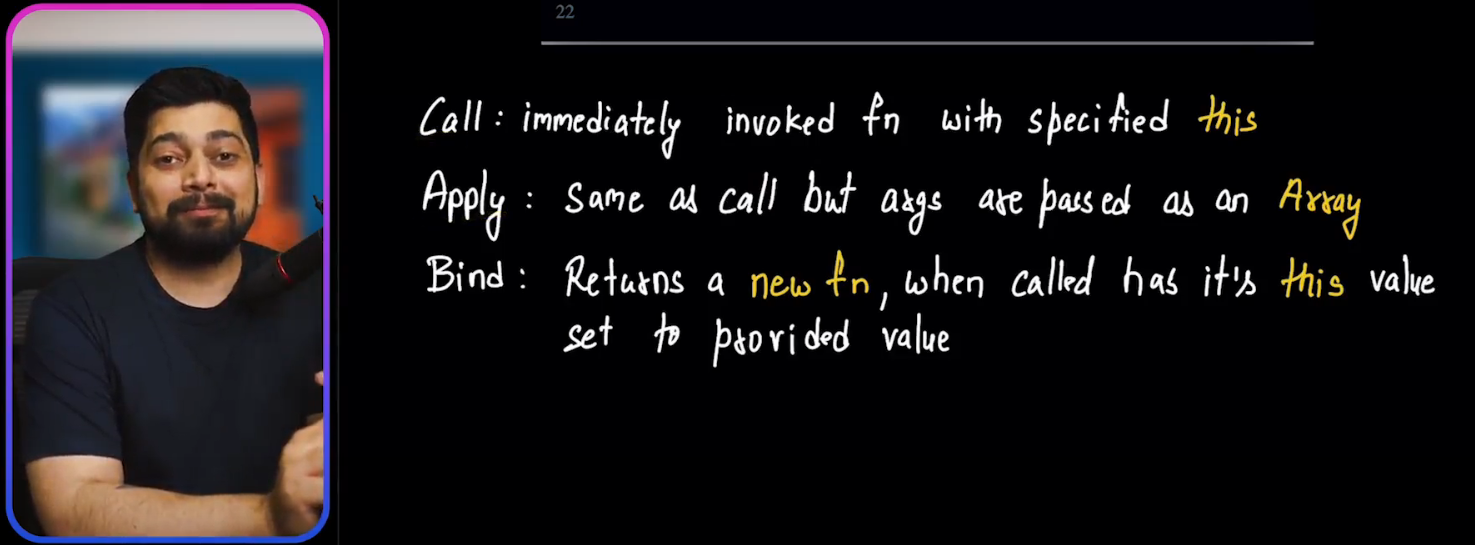 22
Call : immediately invoked fn with specified this
Apply : Same as call but args are passed as an Array
Bind : Returns a new fn, when called has it's this value
set to provided value